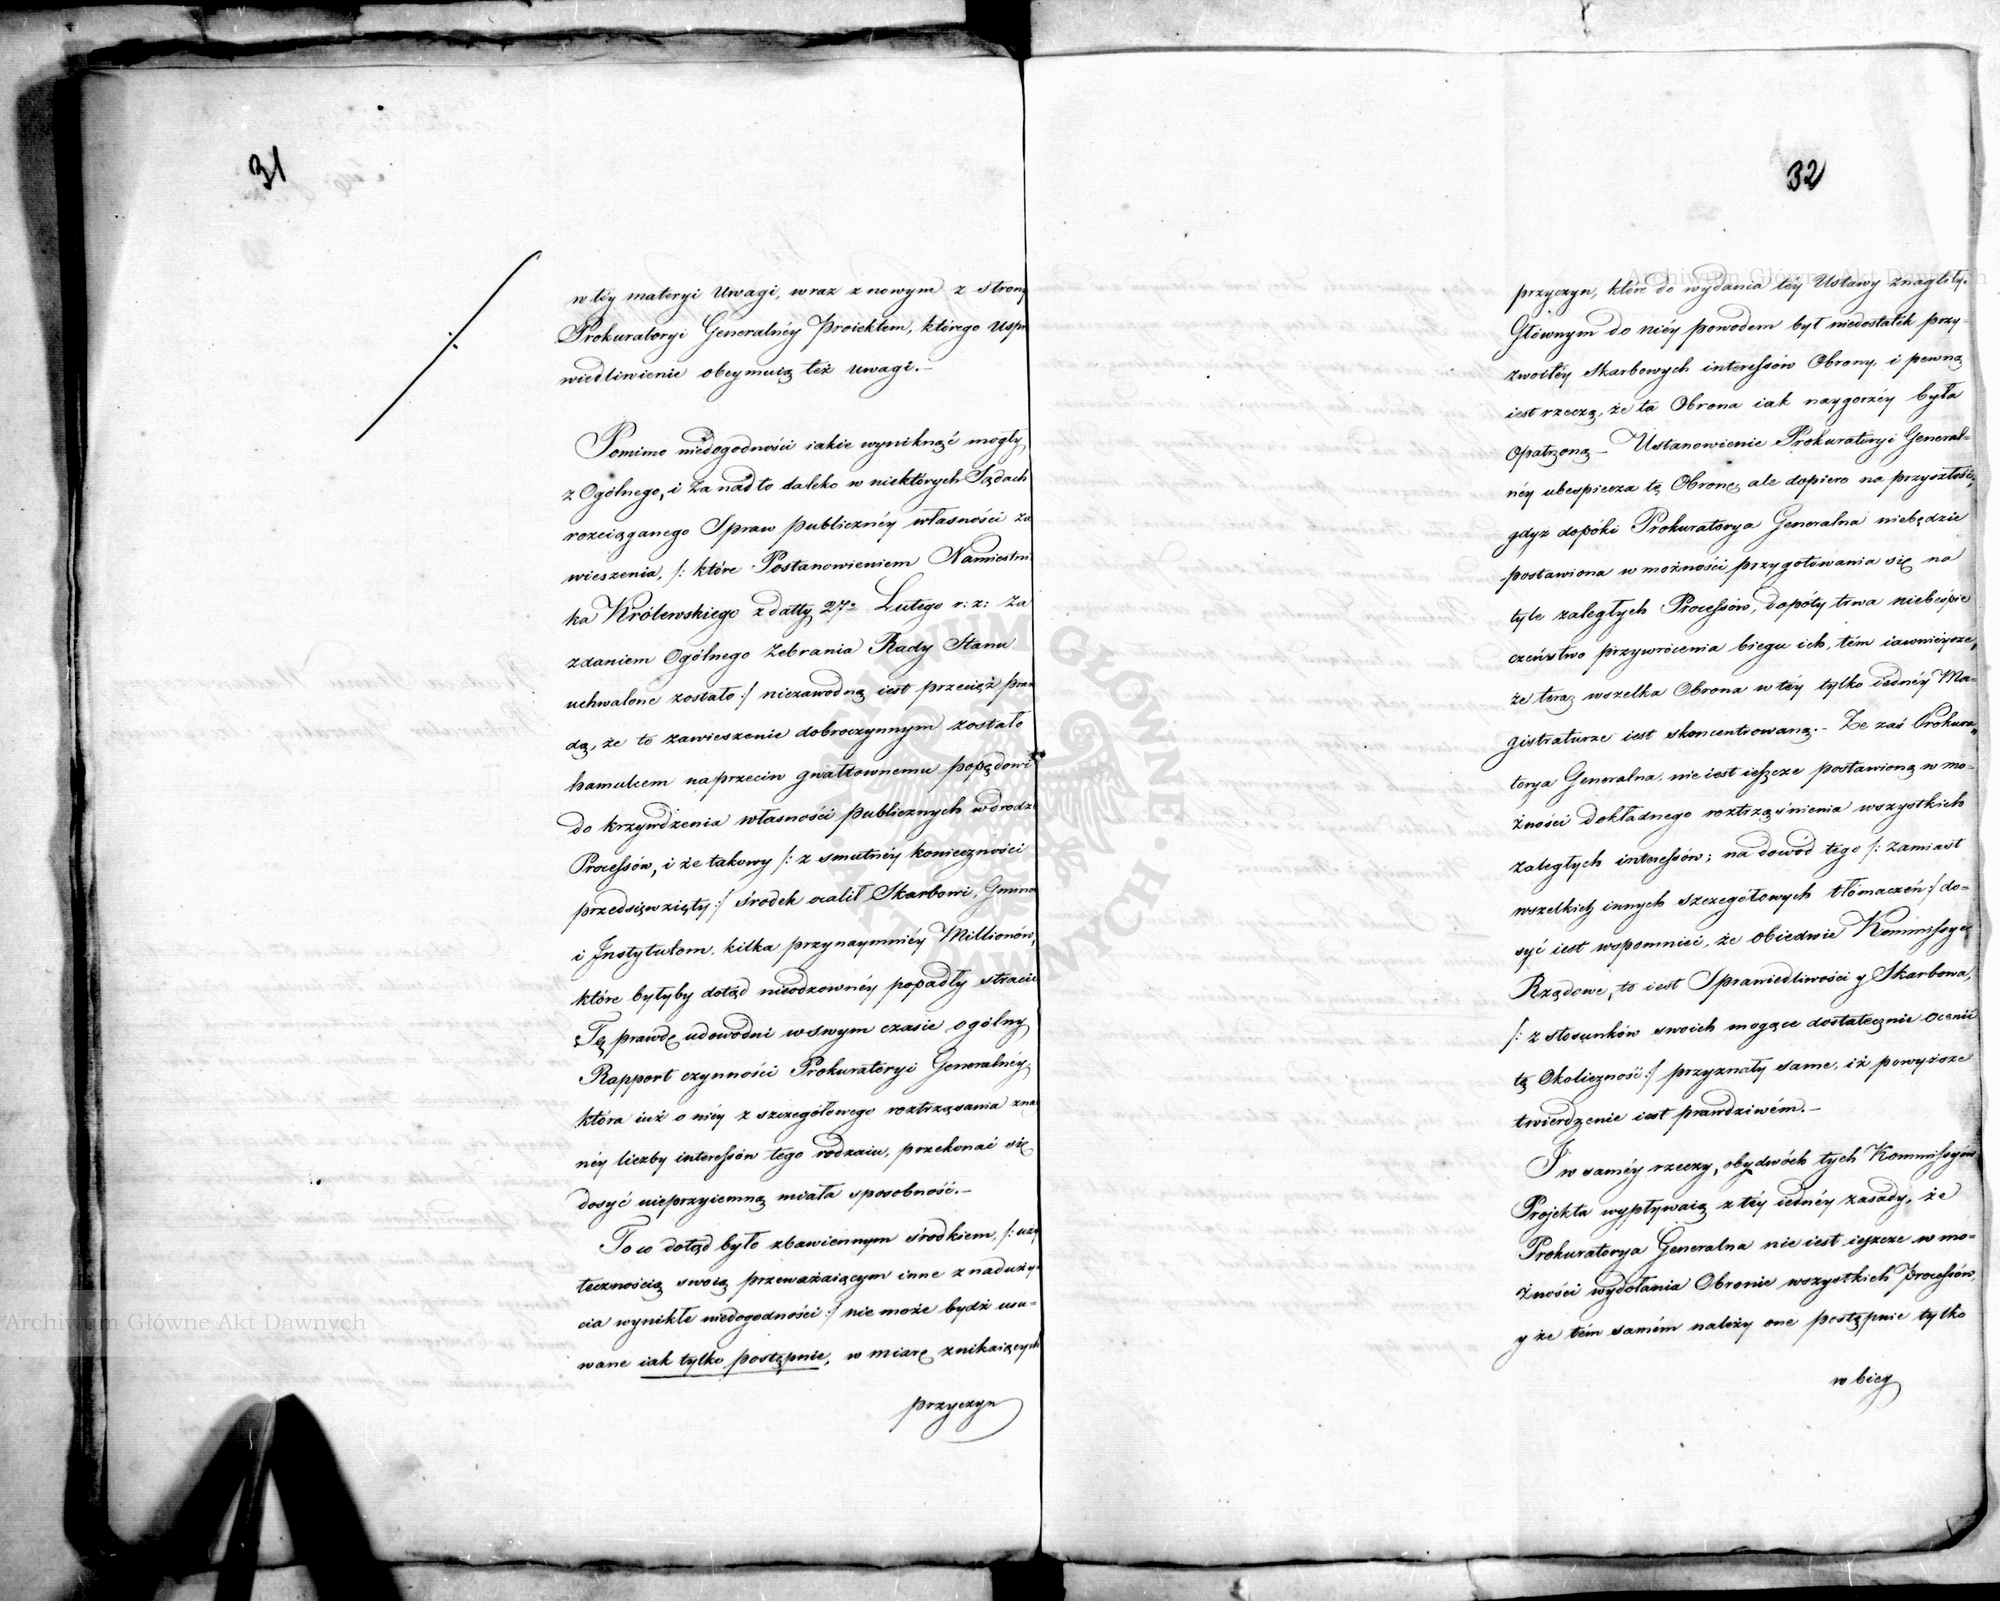 31
w téy materyi Uwagi, wraz z nowym z strony
Prokuratoryi Generalnéy Proiektem, którego uspr
wiedliwienie obeymuią też uwagi.–
Pomimo niedogodności iakie wyniknąć mogły
z Ogólnego, i za nadto daleko w niektórych Sądach
rozciąganego Spraw publicznéy własności za
wieszenia, /: które Postanowieniem Namiestni
ka Królewskiego z datty 27º Lutego r: z: za
zdaniem Ogólnego Zebrania Rady Stanu
uchwalone zostało :/ niezawodną iest przecięż praw
dą, że to zawieszenie dobroczynnym zostało
hamulcem naprzeciw gwałtownemu popędowi
do krzywdzenia własności publicznych w drodze
Processów, i że takowy /: z smutnéy konieczności
przedsięwzięty :/ środek ocalił Skarbowi, Gmino
i Instytutom, kilka przynaymniéy Millionów,
które byłyby dotąd nieodzownéy popadły stracie
Tę prawdę udowodni w swym czasie ogólny
Rapport czynności Prokuratoryi Generalnéy,
która iuż o niéy z szczegółowego roztrząsania zna
néy liczby interessów tego rodzaiu, przekonać się
dosyć nieprzyiemną miała sposobność.–
To co dotąd było zbawiennym środkiem, /: uży
tecznością swoią przeważaiącym inne z naduży
cia wynikłe niedogodności :/ nie może bydź usu-
wane iak tylko postępnie, w miarę znikaiących
przyczyn
32
przyczyn, które do wydania téy Ustawy znagliły.
Głównym do niéy powodem był niedostatek przy-
zwoitéy Skarbowych interessów Obrony, i pewną
iest rzeczą, że ta Obrona iak naygorzéy była
Opatrzoną – Ustanowienie Prokuratoryi General=
néy ubespiecza tę Obronę, ale dopiero na przyszłość,
gdyż dopóki Prokuratorya Generalna niebędzie
postawiona w możności przygotowania się na
tyle zaległych Processów, dopóty trwa niebespie
czeństwo przywrócenia biegu ich, tém iawniéysze,
że teraz wszelka Obrona w téy tylko iednéy Ma-
gistraturze iest skoncentrowaną.– Że zaś Prokura,,
torya Generalna, nie iest ieszcze postawioną w mo-
żności dokładnego roztrząśnienia wszystkich
zaległych interessów; na dowod tego /: zamiast
wszelkich innych szczegółowych tłómaczeń :/ do-
syć iest wspomnieć, że obiedwie Kommissye
Rządowe, to iest Sprawiedliwości y Skarbowa,
/: z stosunków swoich mogące dostatecznie ocenić
tę Okoliczność :/ przyznały same, iż powyższe
twierdzenie iest prawdziwém.–
I w saméy rzeczy, obydwóch tych Kommissyów
Projekta wypływaią z téy iednéy zasady, że
Prokuratorya Generalna nie iest ieszcze w mo-
żności wydołania Obronie wszystkich Processów,
y że tém samém należy one postępnie tylko
w bieg